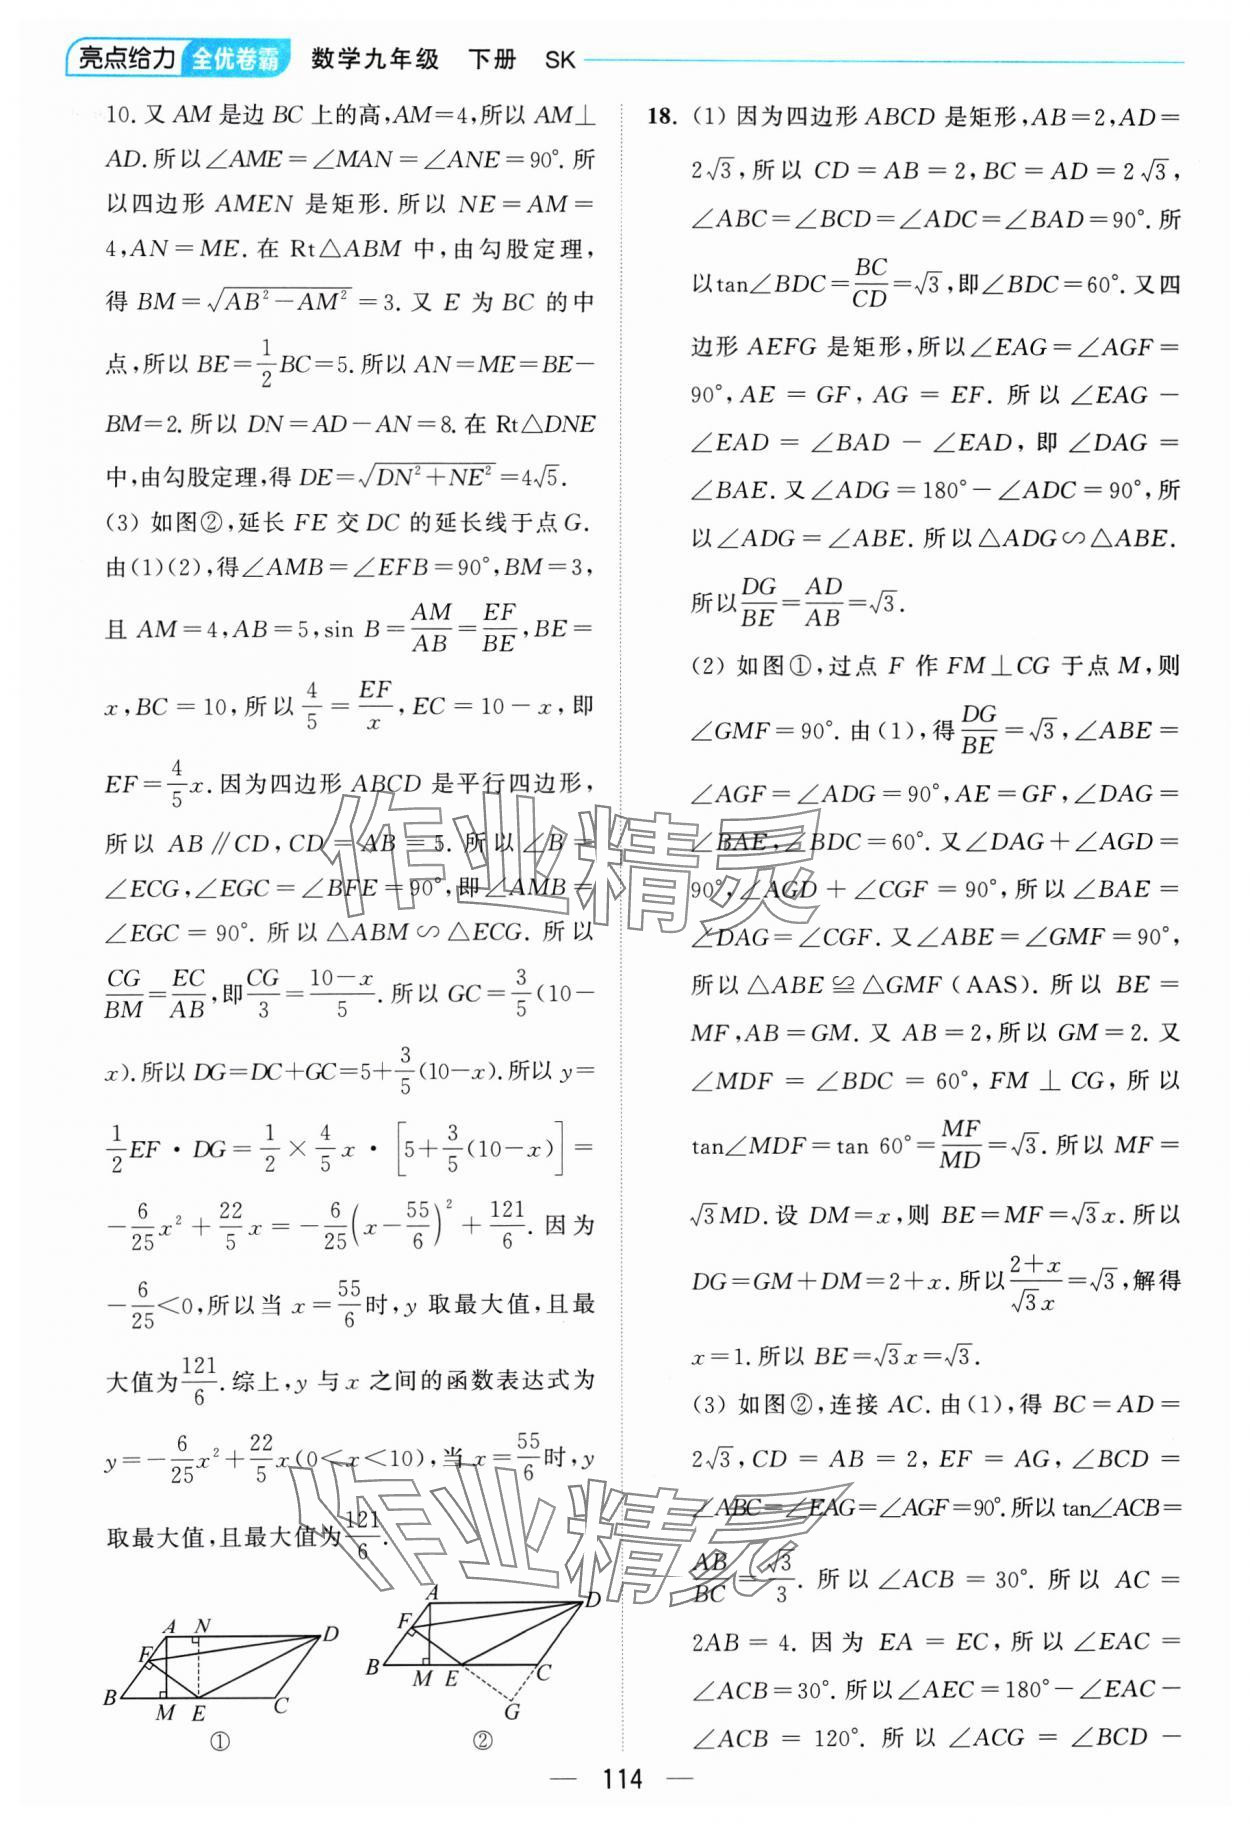 亮点给力 全优卷霸 数学九年级 下册 SK
10. 又 AM 是边 BC 上的高,AM=4,所以 AM⊥
AD. 所以∠AME=∠MAN=∠ANE=90°. 所
以四边形 AMEN 是矩形. 所以 NE=AM=
4,AN=ME. 在 Rt△ABM 中,由勾股定理,
得 BM=√(AB²-AM²)=3. 又 E 为 BC 的中
点,所以 BE=1/2BC=5. 所以 AN=ME=BE-
BM=2. 所以 DN=AD-AN=8. 在 Rt△DNE
中,由勾股定理,得 DE=√(DN²+NE²)=4√5.
(3) 如图②,延长 FE 交 DC 的延长线于点 G.
由(1)(2),得∠AMB=∠EFB=90°,BM=3,
且 AM=4,AB=5,sin B=AM/AB=EF/BE,BE=
x,BC=10,所以 4/5=EF/x,EC=10-x,即
EF=4/5x. 因为四边形 ABCD 是平行四边形,
所以 AB∥CD,CD=AB=5. 所以∠B=
∠ECG,∠EGC=∠BFE=90°,即∠AMB=
∠EGC=90°. 所以△ABM∽△ECG. 所以
CG/BM=EC/AB,即CG/3=(10-x)/5. 所以 GC=3/5(10-
x). 所以 DG=DC+GC=5+3/5(10-x). 所以 y=
1/2EF·DG=1/2×4/5x·[5+3/5(10-x)]=
-6/25x²+22/5x=-6/25(x-55/6)²+121/6. 因为
-6/25<0,所以当 x=55/6时,y 取最大值,且最
大值为121/6. 综上,y 与 x 之间的函数表达式为
y=-6/25x²+22/5x(0<x<10),当 x=55/6时,y
取最大值,且最大值为121/6.
A N D F B M E C
①
A D F B M E C G
②
18. (1) 因为四边形 ABCD 是矩形,AB=2,AD=
2√3,所以 CD=AB=2,BC=AD=2√3,
∠ABC=∠BCD=∠ADC=∠BAD=90°. 所
以tan∠BDC=BC/CD=√3,即∠BDC=60°. 又四
边形 AEFG 是矩形,所以∠EAG=∠AGF=
90°,AE=GF,AG=EF. 所以∠EAG-
∠EAD=∠BAD-∠EAD,即∠DAG=
∠BAE. 又∠ADG=180°-∠ADC=90°,所
以∠ADG=∠ABE. 所以△ADG∽△ABE.
所以DG/BE=AD/AB=√3.
(2) 如图①,过点 F 作 FM⊥CG 于点 M,则
∠GMF=90°. 由(1),得DG/BE=√3,∠ABE=
∠AGF=∠ADG=90°,AE=GF,∠DAG=
∠BAE,∠BDC=60°. 又∠DAG+∠AGD=
90°,∠AGD+∠CGF=90°,所以∠BAE=
∠DAG=∠CGF. 又∠ABE=∠GMF=90°,
所以△ABE≌△GMF(AAS). 所以 BE=
MF,AB=GM. 又 AB=2,所以 GM=2. 又
∠MDF=∠BDC=60°,FM⊥CG,所以
tan∠MDF=tan 60°=MF/MD=√3. 所以 MF=
√3MD. 设 DM=x,则 BE=MF=√3x. 所以
DG=GM+DM=2+x. 所以(2+x)/(√3x)=√3,解得
x=1. 所以 BE=√3x=√3.
(3) 如图②,连接 AC. 由(1),得 BC=AD=
2√3,CD=AB=2,EF=AG,∠BCD=
∠ABC=∠EAG=∠AGF=90°. 所以 tan∠ACB=
AB/BC=√3/3. 所以∠ACB=30°. 所以 AC=
2AB=4. 因为 EA=EC,所以∠EAC=
∠ACB=30°. 所以∠AEC=180°-∠EAC-
∠ACB=120°. 所以∠ACG=∠BCD-
— 114 —
作业精灵
作业精灵